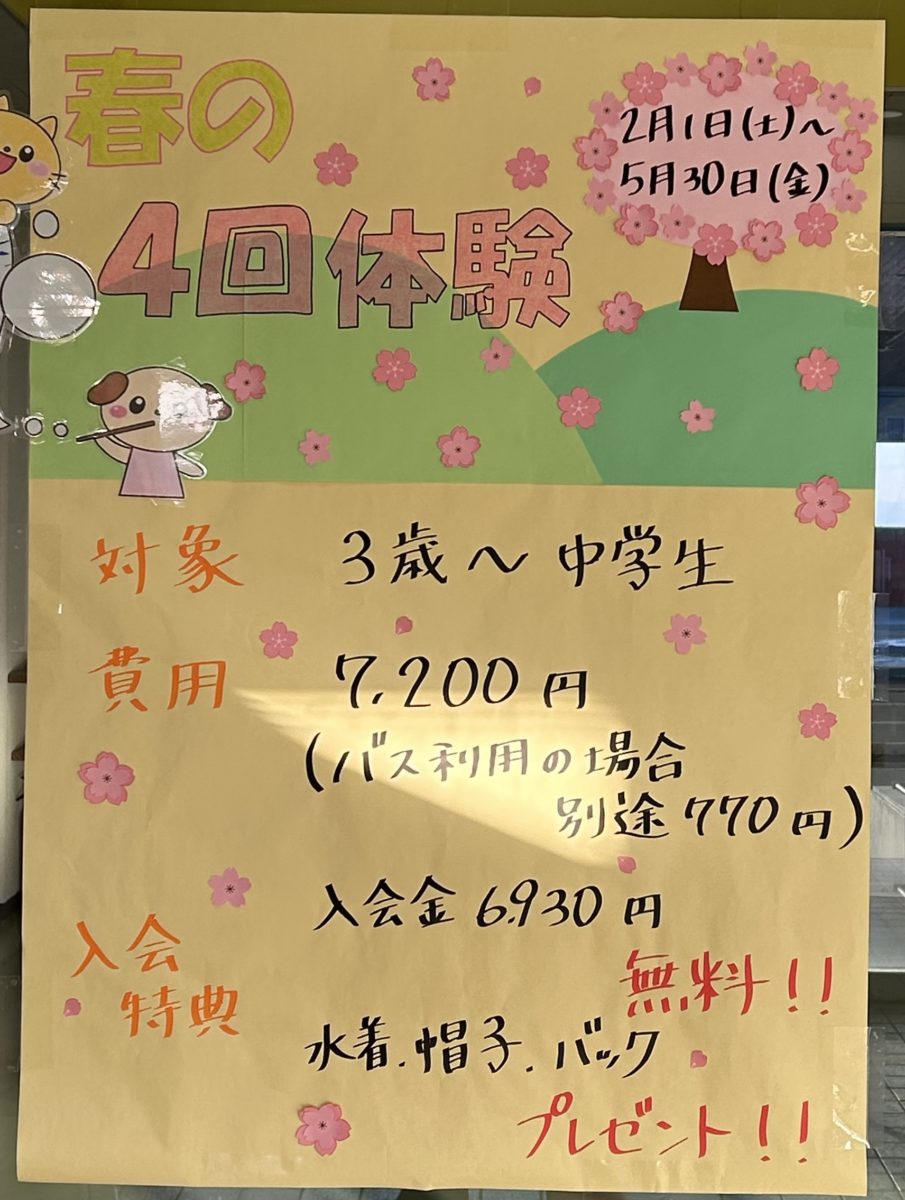 春の
2月1日(土)～
5月30日(金)
4回体験
対象 3歳～中学生
費用 7,200円
(バス利用の場合
別途770円)
入会
特典
入会金6,930円
無料!!
水着、帽子、バック
プレゼント!!